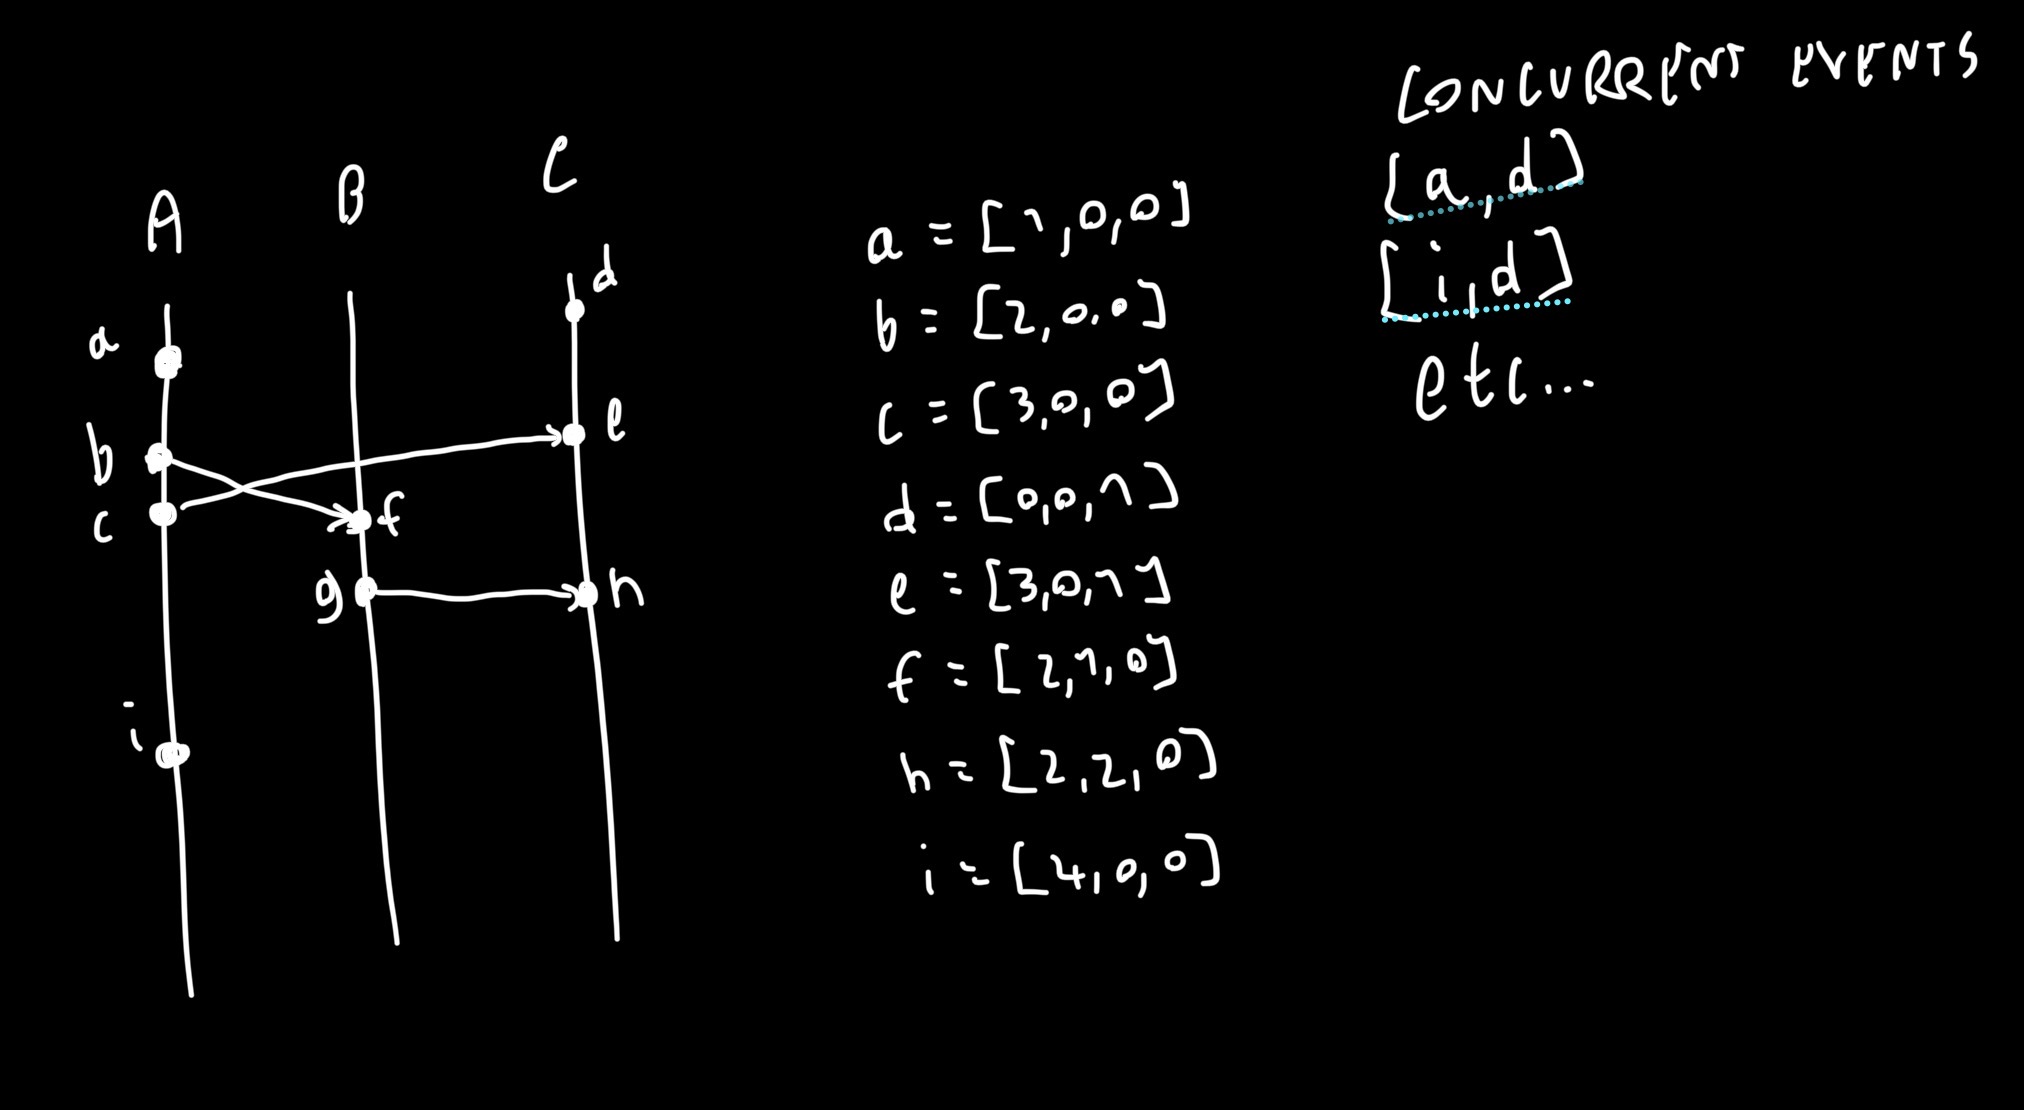 A B C
a
b
c
i
f
g
d
e
h
a = [1,0,0]
b = [2,0,0]
c = [3,0,0]
d = [0,0,1]
e = [3,0,1]
f = [2,1,0]
h = [2,2,0]
i = [4,0,0]
CONCURRENT EVENTS
[a,d]
[i,d]
etc...